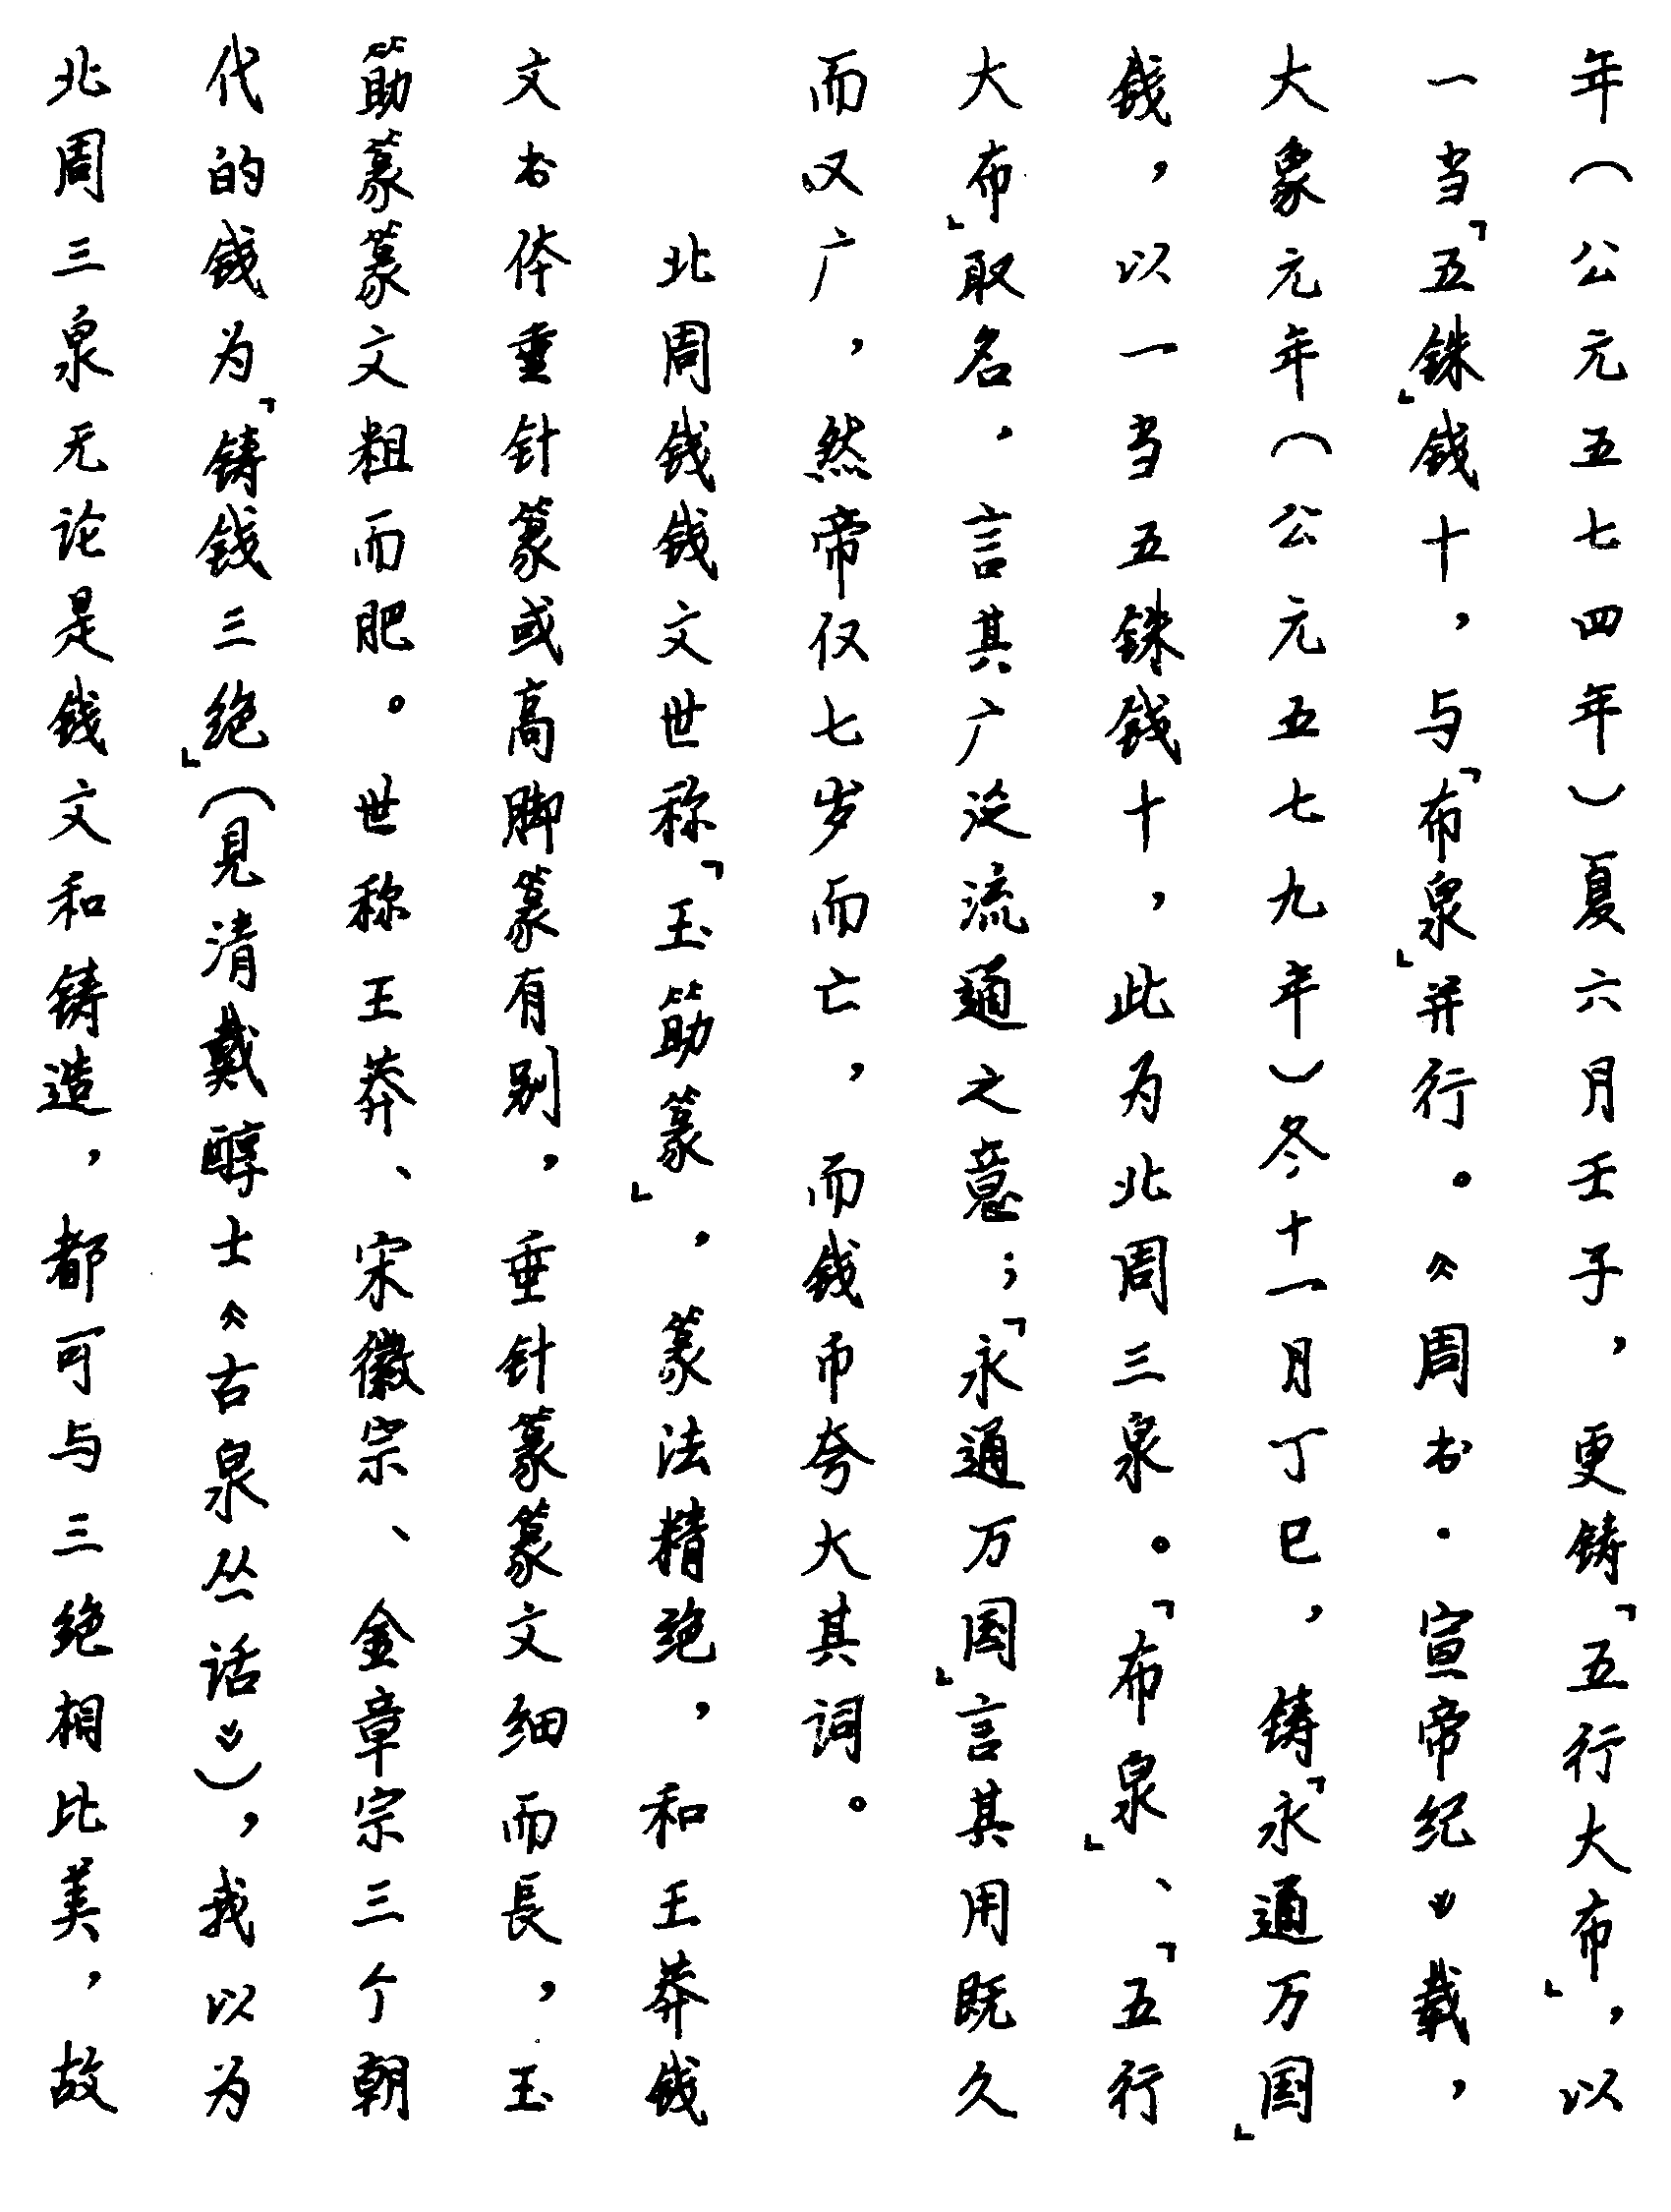 年（公元五七四年）夏六月壬子，更铸「五行大布」，以
一当「五铢」钱十，与「布泉」并行。《周书·宣帝纪》载，
大象元年（公元五七九年）冬十一月丁巳，铸「永通万国」
钱，以一当五铢钱十，此为北周三泉。「布泉」、「五行
大布」取名，言其广泛流通之意；「永通万国」言其用既久
而又广，然帝仅七岁而亡，而钱币夸大其词。
北周钱钱文世称「玉筯篆」，篆法精绝，和王莽钱
文书体垂针篆或高脚篆有别，垂针篆篆文细而長，玉
筯篆篆文粗而肥。世称王莽、宋徽宗、金章宗三个朝
代的钱为「铸钱三绝」（見清戴醇士《古泉丛话》），我以为
北周三泉无论是钱文和铸造，都可与三绝相比美，故